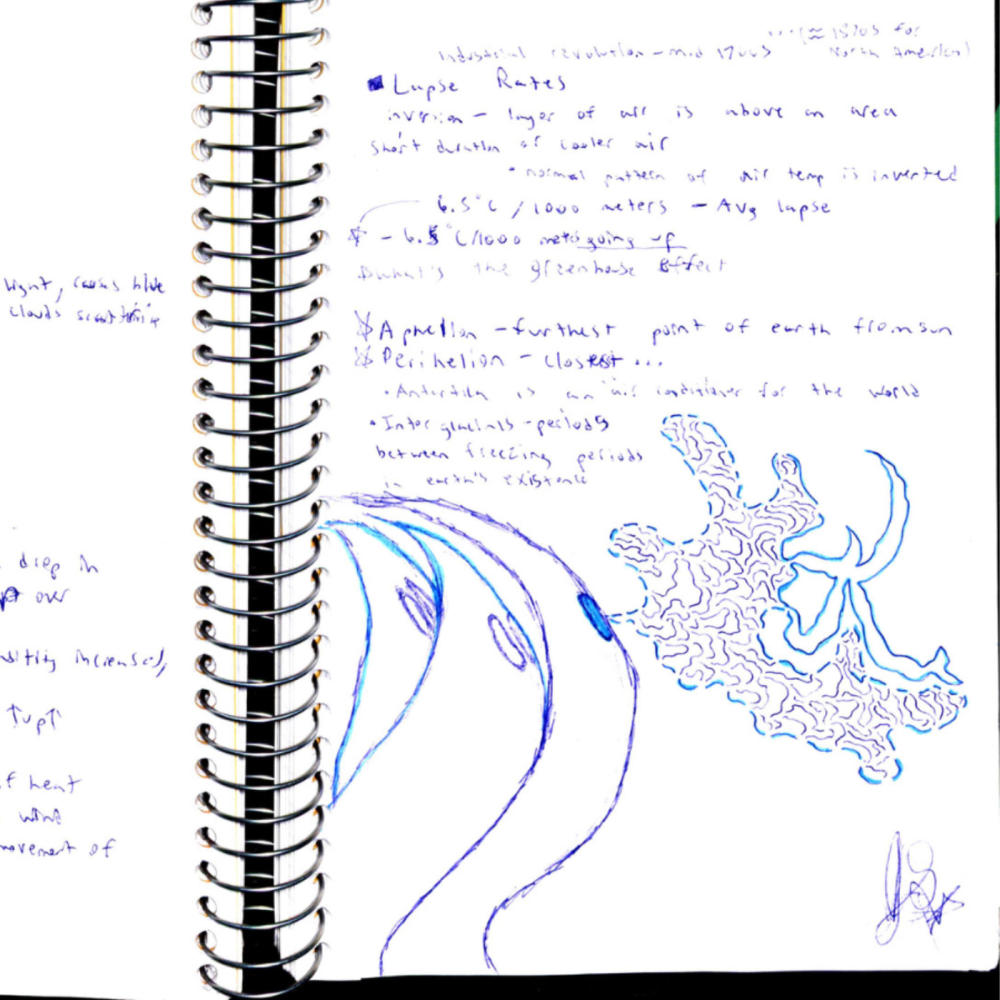 light, causes blue
clouds scattering
drop in
over
increased,
of heat
wind
movement of
(≈ 1870s for
Industrial revolution - mid 1700s North America)
Lapse Rates
inversion - layer of air is above an area
short duration of cooler air
• normal pattern of air temp is inverted
6.5°C / 1000 meters - Avg lapse
- 6.5°C/1000 going up
what's the greenhouse effect
Aphelion - furthest point of earth from sun
Perihelion - closest ...
• Antarctica is an air conditioner for the world
• Inter glacials - periods
between freezing periods
in earth's existence